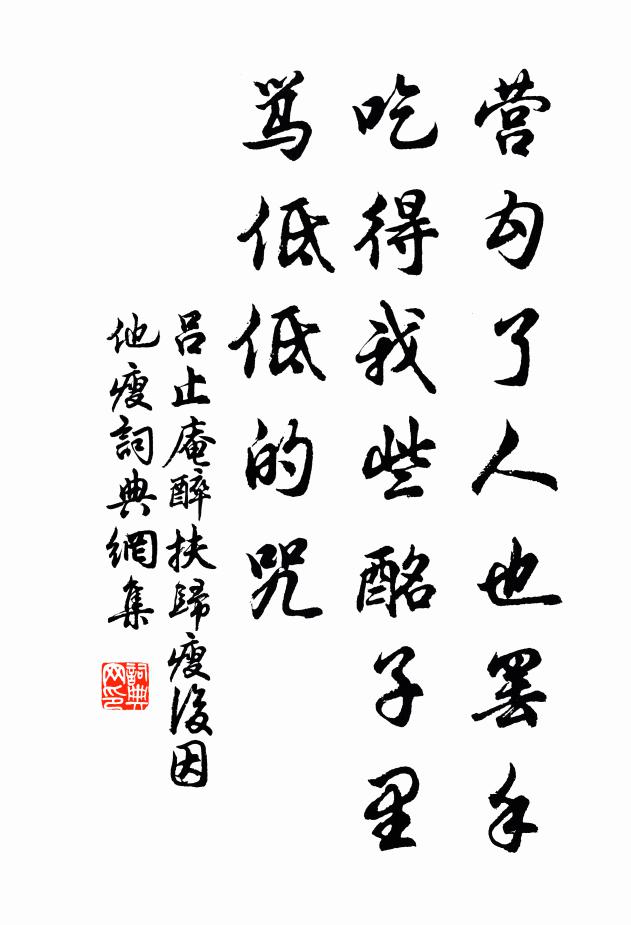 营勾了人也罢手
吃得我些酩子里
骂低低的咒
吕止庵醉扶歸瘦後因
他瘦詞典網集
詞典
网印